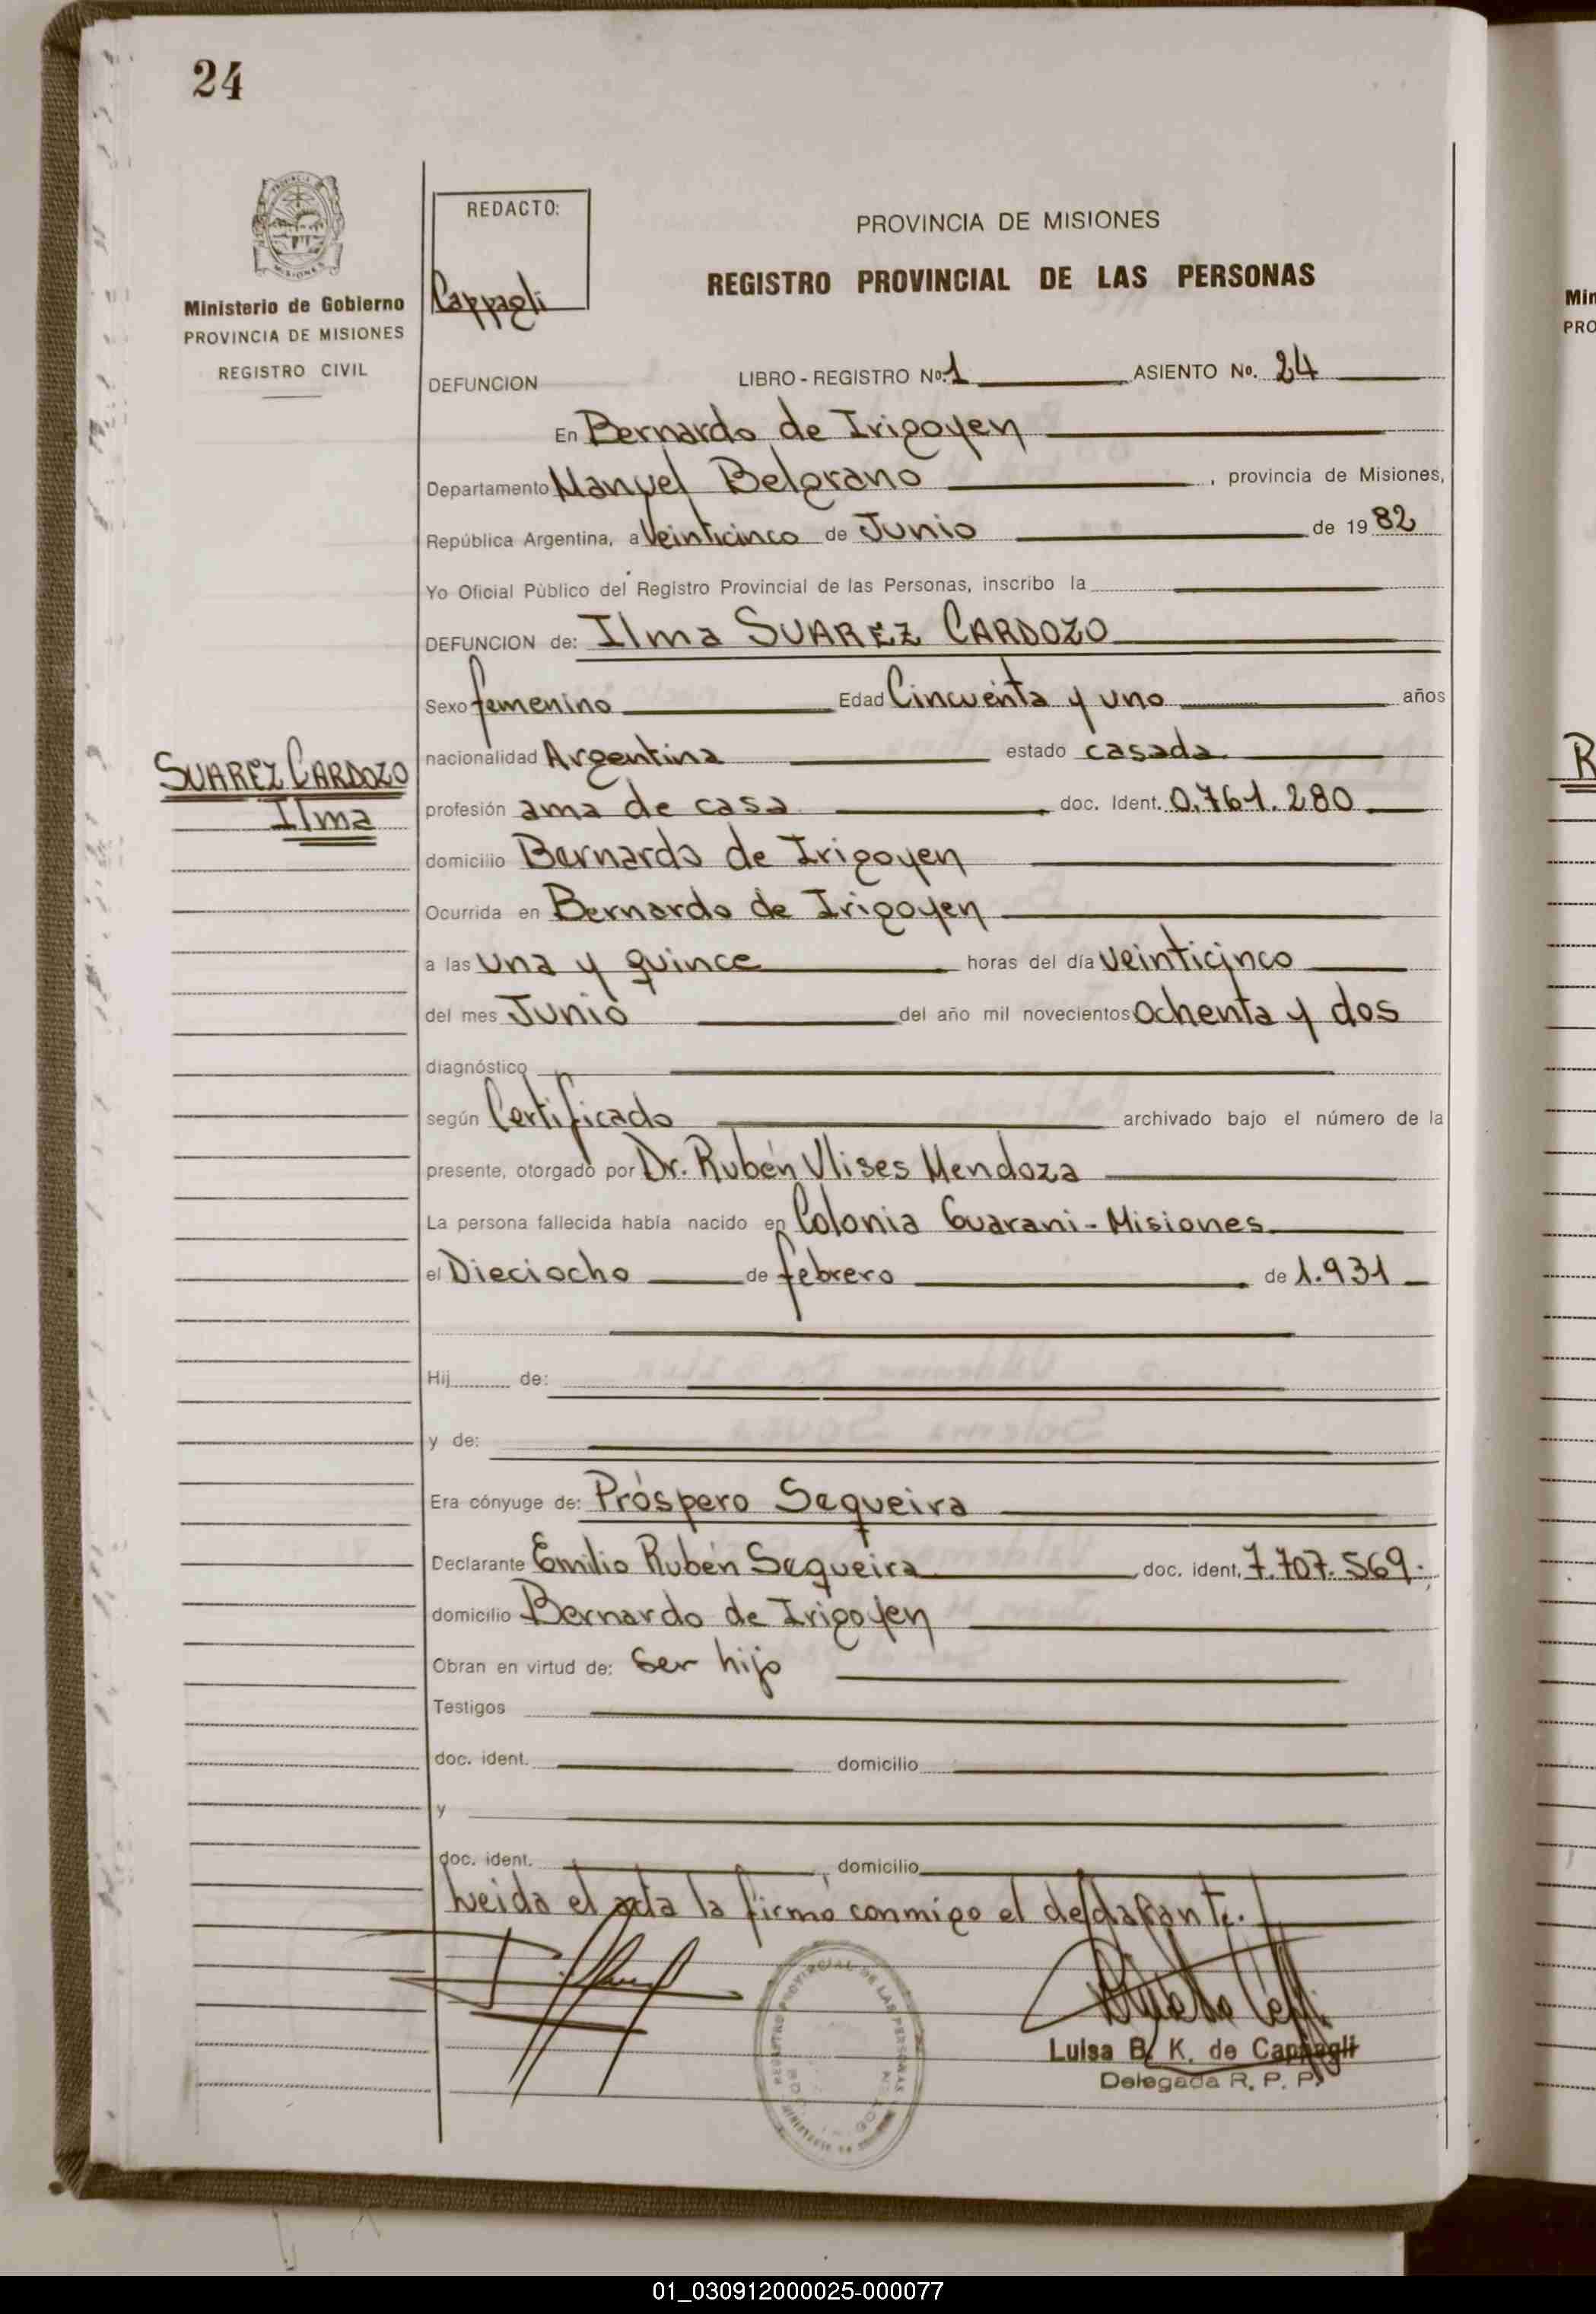 24
PROVINCIA
MISIONES
Ministerio de Gobierno
PROVINCIA DE MISIONES
REGISTRO CIVIL
REDACTO:
Cappagli
PROVINCIA DE MISIONES
REGISTRO PROVINCIAL DE LAS PERSONAS
DEFUNCION LIBRO - REGISTRO Nº. 1 ASIENTO Nº. 24
En Bernardo de Irigoyen
Departamento Manuel Belgrano, provincia de Misiones,
República Argentina, a Veinticinco de Junio de 1982
Yo Oficial Público del Registro Provincial de las Personas, inscribo la
DEFUNCION de: Ilma SUAREZ CARDOZO
Sexo femenino Edad Cincuenta y uno años
nacionalidad Argentina estado casada
SUAREZ CARDOZO
Ilma
profesión ama de casa doc. Ident. 0.761.280
domicilio Bernardo de Irigoyen
Ocurrida en Bernardo de Irigoyen
a las una y quince horas del día veinticinco
del mes Junio del año mil novecientos ochenta y dos
diagnóstico
según Certificado archivado bajo el número de la
presente, otorgado por Dr. Rubén Ulises Mendoza
La persona fallecida había nacido en Colonia Guarani - Misiones
el Dieciocho de febrero de 1.931
Hij de:
y de:
Era cónyuge de: Próspero Sequeira
Declarante Emilio Rubén Sequeira doc. ident. 7.707.569.
domicilio Bernardo de Irigoyen
Obran en virtud de: Ser hijo
Testigos
doc. ident. domicilio
y
doc. ident. , domicilio
Leida el acta la firma conmigo el declarante.
REGISTRO PROVINCIAL DE LAS PERSONAS
Luisa B. K. de Cappagli
Delegada R. P. P.
Min
PRO
R
01_030912000025-000077